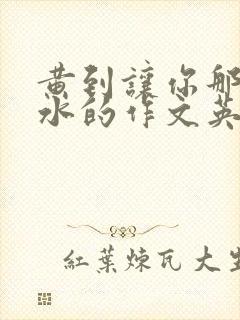 黄到讓你那
水的作文英
紅葉煉瓦大生